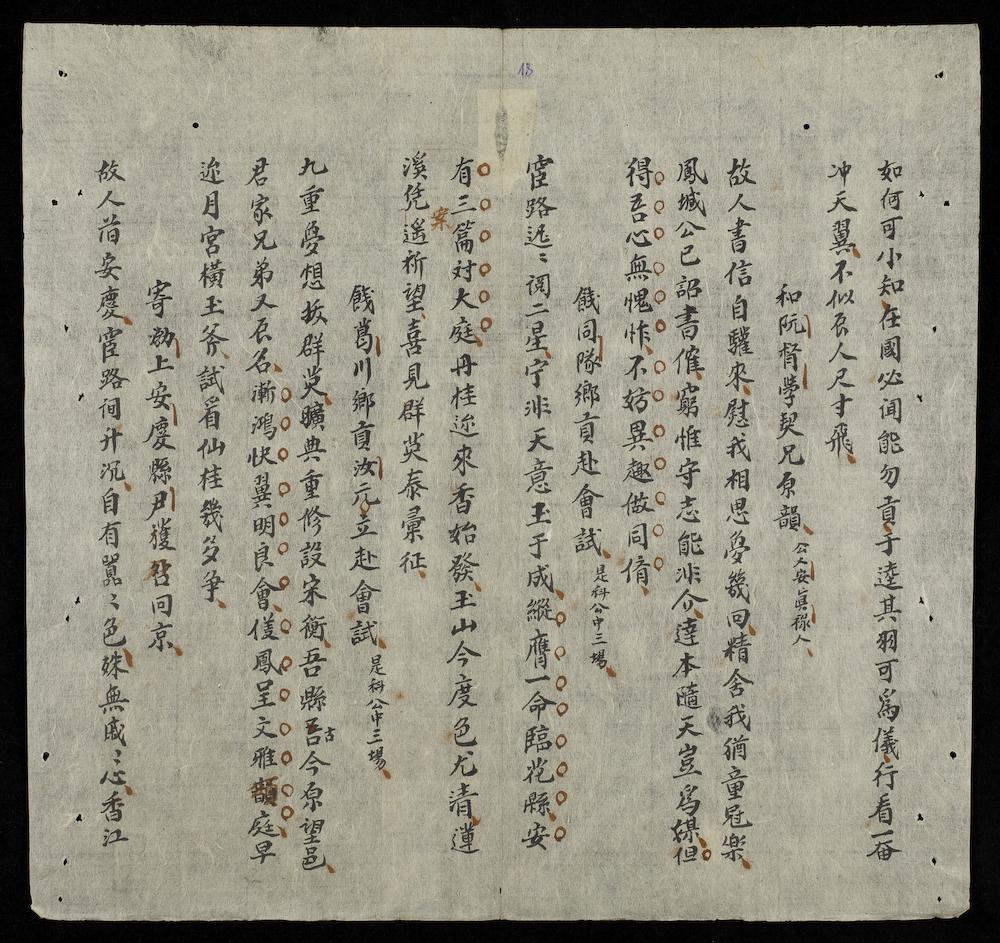 18
如何可小知在國必闻能勿貢于逵其羽可爲儀行看一奋
冲天翼不似辰人尺寸飛
和阮督學契兄原韻公乂安真祿人
故人書信自驩來慰我相思夢幾回精舍我猶童冠樂
鳳城公已詔書催窮惟守志能非介達本隨天豈爲媒但
得吾心無愧怍不妨異趣做同脩
餞同隊鄉貢赴會試是科公中三場
宦路迢〻閲二星宁非天意玉于成縱膺一命臨花縣安
有三篇対大庭丹桂迩來香始發玉山今度色尤清蓮
溪凭案遥祈望喜見群英泰彙征
餞葛川鄉貢汝元立赴會試是科公中三場
九重夢想拔群英曠典重修設宋衡吾縣吾古今原望邑
君家兄弟又辰名漸鴻快翼明良會儀鳳呈文雅韻庭早
迩月宮橫玉斧試看仙桂幾多争
寄勉上安慶縣尹獲召回京
故人莅安慶宦路间升沉自有嚣〻色殊無戚〻心香江